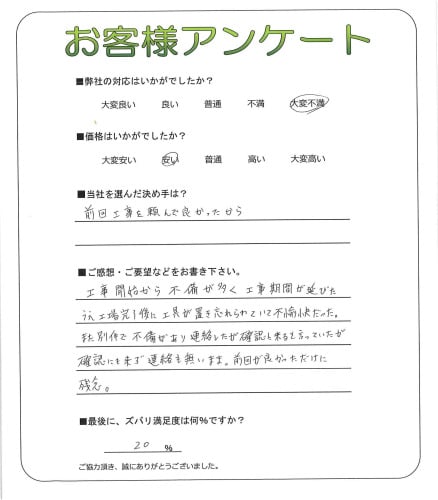 お客様アンケート
■弊社の対応はいかがでしたか？
大変良い 良い 普通 不満 大変不満
■価格はいかがでしたか？
大変安い 安い 普通 高い 大変高い
■当社を選んだ決め手は？
前回工事を頼んで良かったから
■ご感想・ご要望などをお書き下さい。
工事開始から 不備が多く 工事期間が延びた
うえ工場完了後に工具が置き忘れられていて不愉快だった。
また別件で不備があり連絡したが確認と来ると言っていたが
確認にも来ず連絡も無いまま。前回が良かっただけに
残念。
■最後に、ズバリ満足度は何%ですか？
20 %
ご協力頂き、誠にありがとうございました。